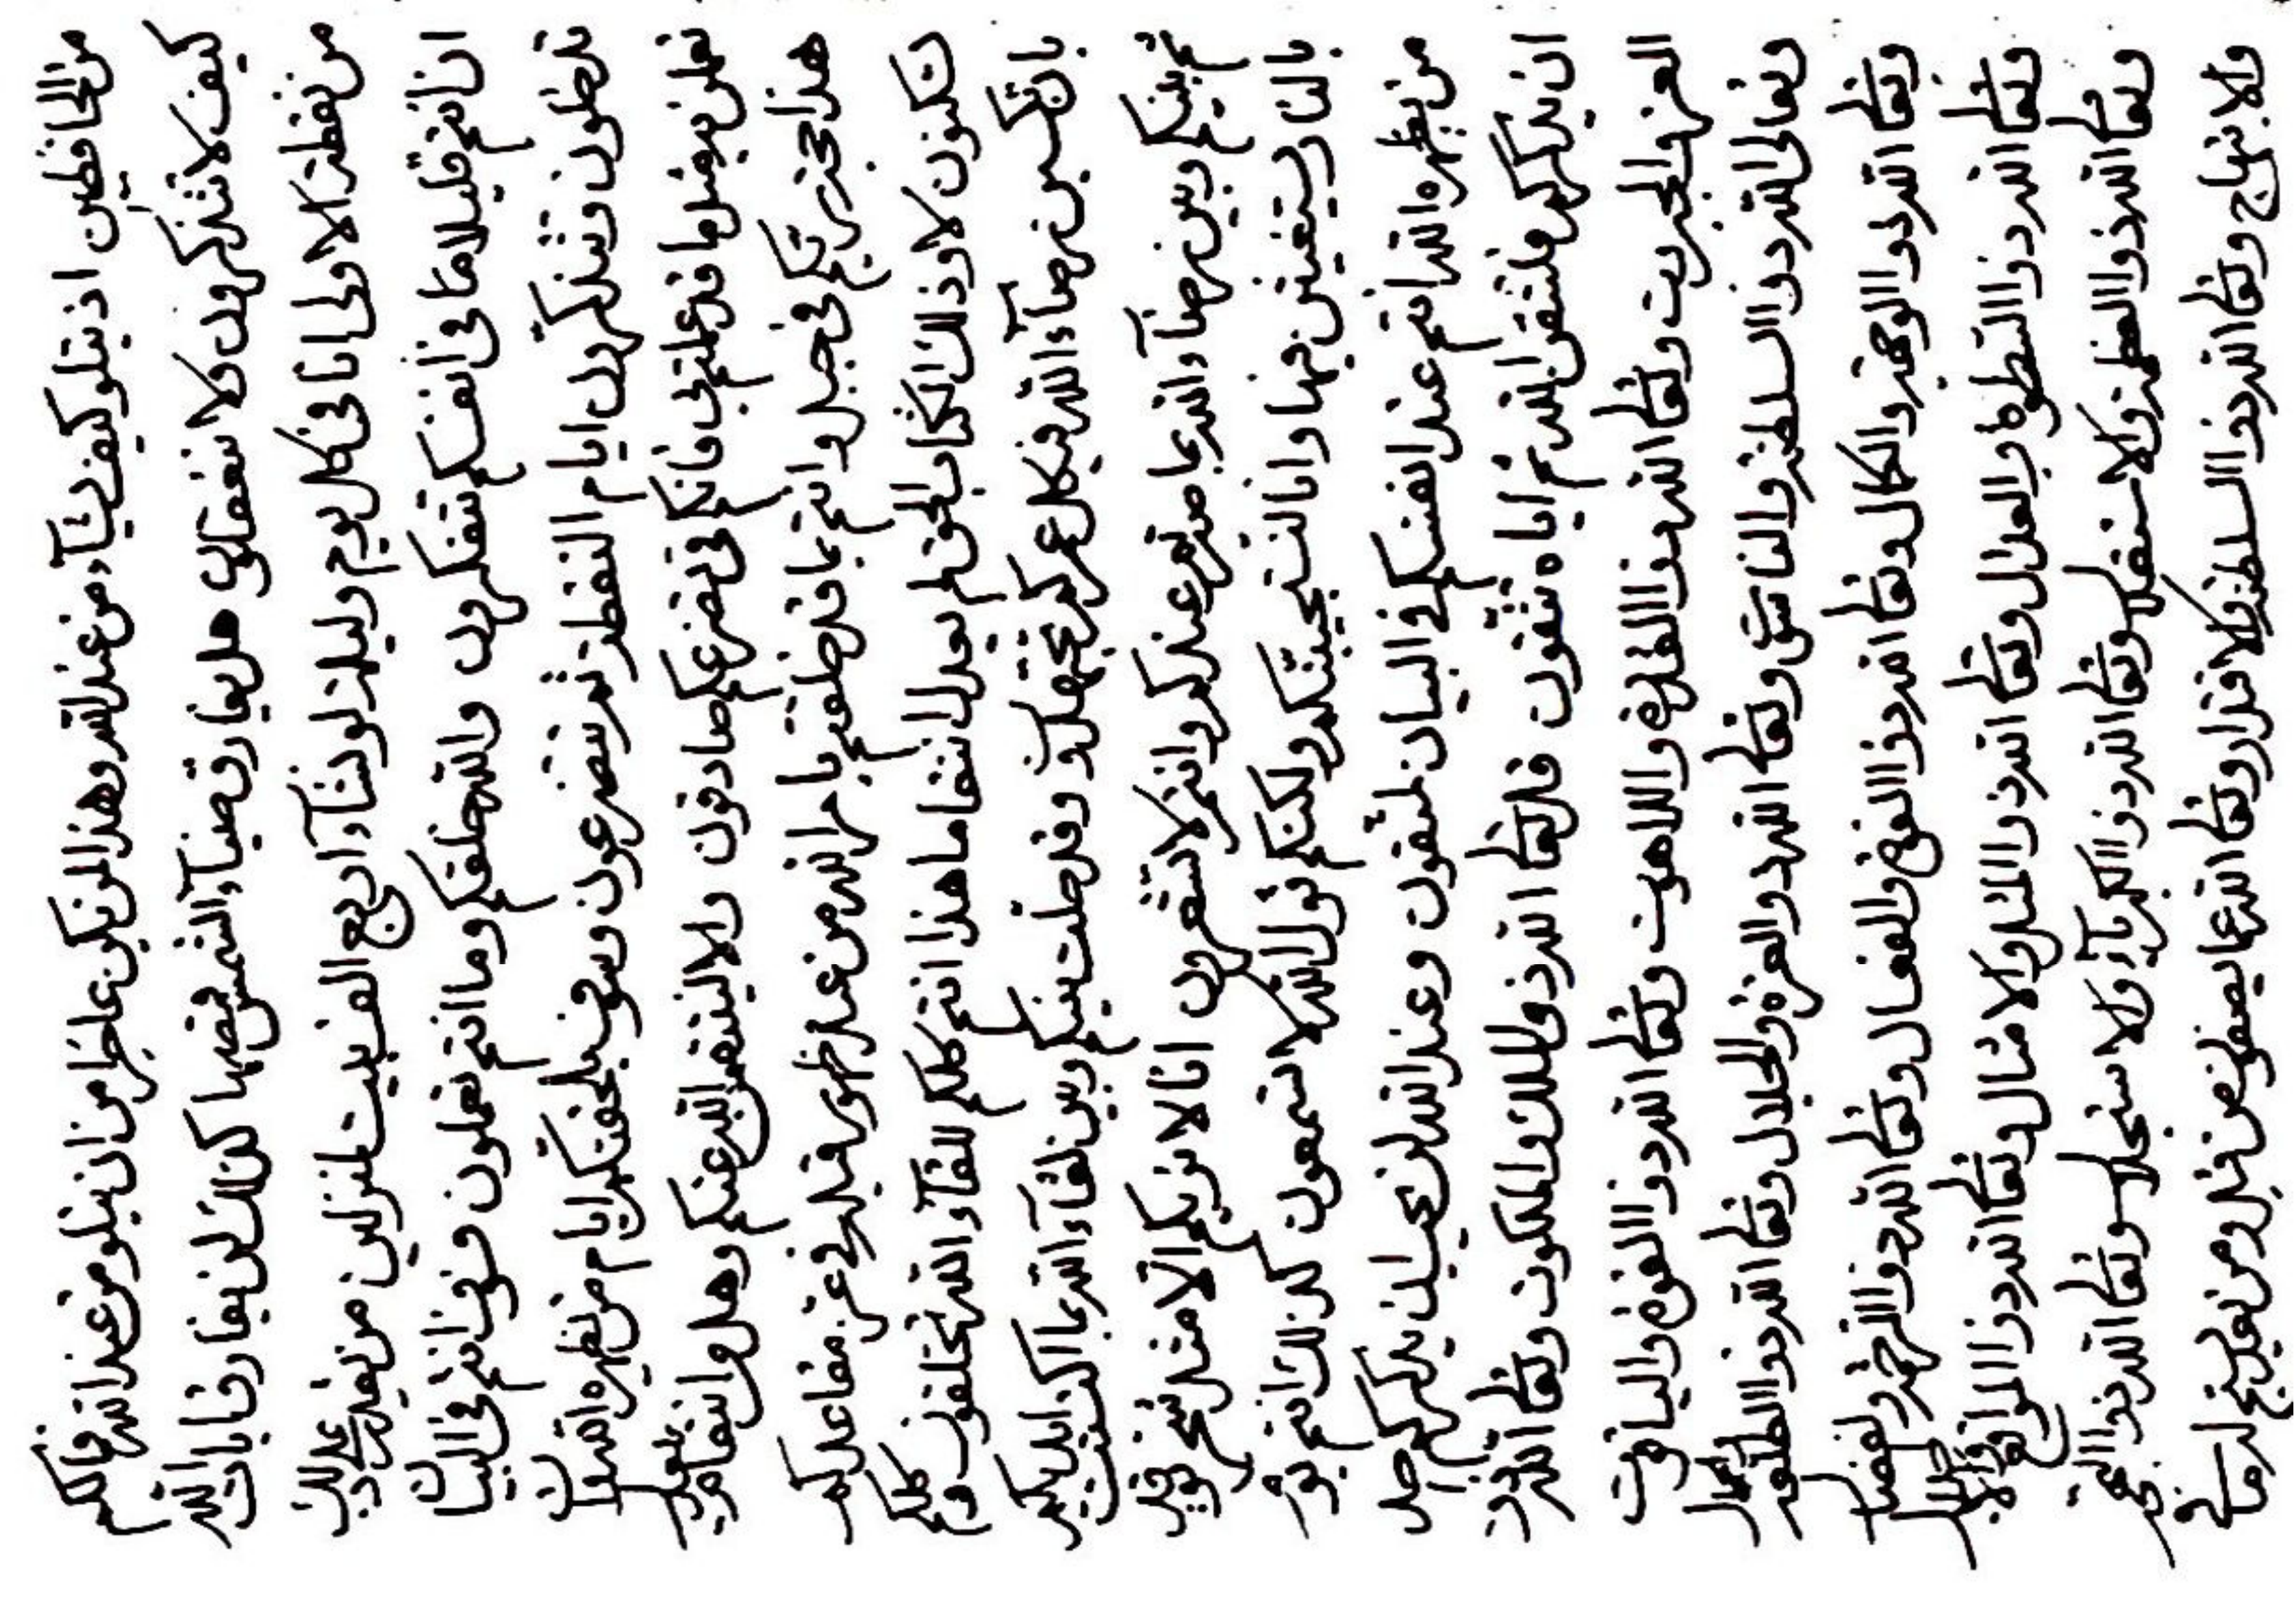 من الحافظين اذ يبلو كيف يشآء من عند الله وهذا لن يكون على خير من ان يبلو من عند الله فما لكم
كيف لا تتذكرون ولا تتعقلون هل يفارق ضيآء الشمس قرصها كذلك لن يفارق ايات الله
من نقطة الاولى انا في كل يوم وليلة لو نشآء اربع الف بيت لننزلن من يقدر على ذلك
ان انتم قليلا ما في انفسكم تتفكرون والله خلقكم وما انتم تعملون فسوف انتم في البيان
تدخلون وتتذكرون ايام النقطة ثم تتضرعون وسوف يلحقنكم ايام من يظهره الله
تعملن بمثل ما قد عملتم بي فانكم في تضرعكم صادقون والا لينتقمن الله عنكم وهل وانتقام
هذا محزن بكم في جبل وانتم بما قد خلقتم بامر الله من عند ظهور قبلي في عز مقاعدكم
تسكنون لا وذلك الكتاب الحق لم يعدل انتقاما هذا انتم كلكم للقآء الله تخلقون وكلكم
بان تكسبن رضآء الله في كل عمركم تجتهدون وقد حلت بينكم وبين لقآء الله بما اكتسبت ايديكم
ثم بينكم وبين رضآء الله بما صنع عندكم وانتم لا تشعرون انا لا نريكم الا مثل شيخ
بالنار يستغيثن منها وانا لنستجيبنكم ولكنكم قول الله لا تسمعون كذلك انتم يوم
من يظهره الله انتم عند انفسكم في البيان لمتقون وعند الله لن يحب ان يذكركم هل
ان يذكركم فلتتقن الله ثم اياه تتقون فلتعا الله ذو الملك والملكوت وتعا الله ذو
العز والجبروت وتعا الله ذو القدرة واللاهوت وتعا الله ذو القوة والياقوت
وتعالى الله ذو السلطنة والناسوت وتعا الله ذو العزة والجلال وتعا الله ذو الطلعة والجمال
وتعا الله ذو الوجهة والكمال وتعا الله ذو القوة والفعال وتعا الله ذو الرحمة والفضال
وتعا الله ذو السطوة والعدال وتعا الله ذو المثل والامثال وتعا الله ذو المواقع والاجلال
وتعا الله ذو العظمة والاستقلال وتعا الله ذو الكبريآء والاستجلال وتعا الله ذو العزة
والابتهاج وتعا الله ذو السلطنة والاقتدار وتعا الله عما يصفون من قبل ومن بعد